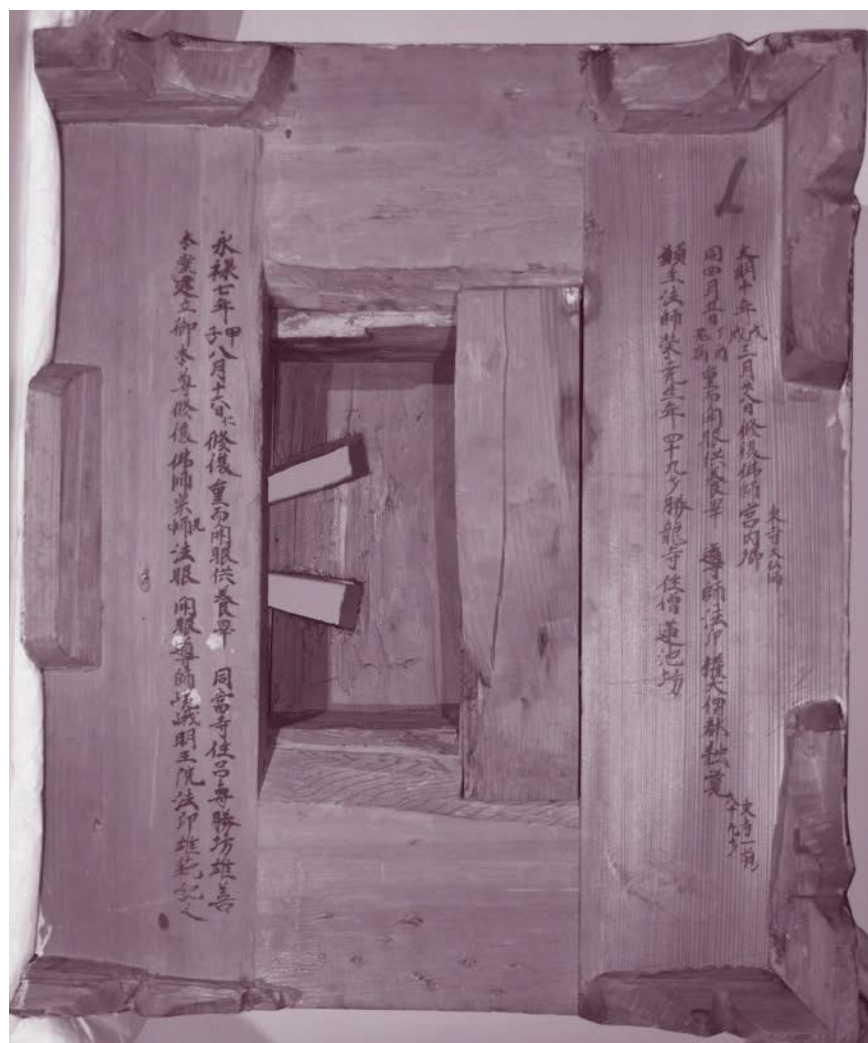 文明十年戊戌三月廿八日修復佛師宮内卿
東寺大仏師
同四月廿日重而開眼供養畢 導師法印權大僧都
東寺一
願主法師榮生年四十九才勝龍寺住僧蓮池坊
永禄七年甲子八月十六日ニ修復重而開眼供養畢 同當寺住呂專勝坊雄善
本堂建立御本尊修復佛師宗法眼 開眼導師嵯峨明王院法印雄範記之